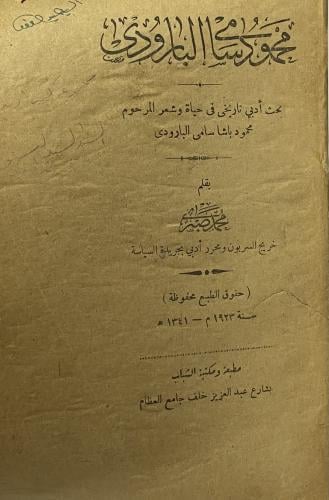 محمود سامي البارودي
بحث أدبي تاريخي في حياة وشعر المرحوم
محمود باشا سامي البارودي
بقلم
محمد صبري
خريج السربون ومحرر أدبي بجريدة السياسة
( حقوق الطبع محفوظة )
سنة ١٩٢٣ م — ١٣٤١ ه
مطبعة ومكتبة الشباب
بشارع عبد العزيز خلف جامع العظام